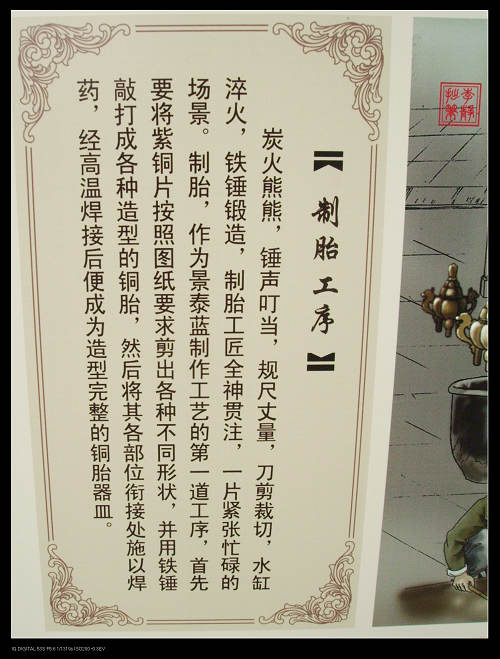 【制胎工序】
炭火熊熊，锤声叮当，规尺丈量，刀剪裁切，水缸
淬火，铁锤锻造，制胎工匠全神贯注，一片紧张忙碌的
场景。制胎，作为景泰蓝制作工艺的第一道工序，首先
要将紫铜片按照图纸要求剪出各种不同形状，并用铁锤
敲打成各种造型的铜胎，然后将其各部位衔接处施以焊
药，经高温焊接后便成为造型完整的铜胎器皿。